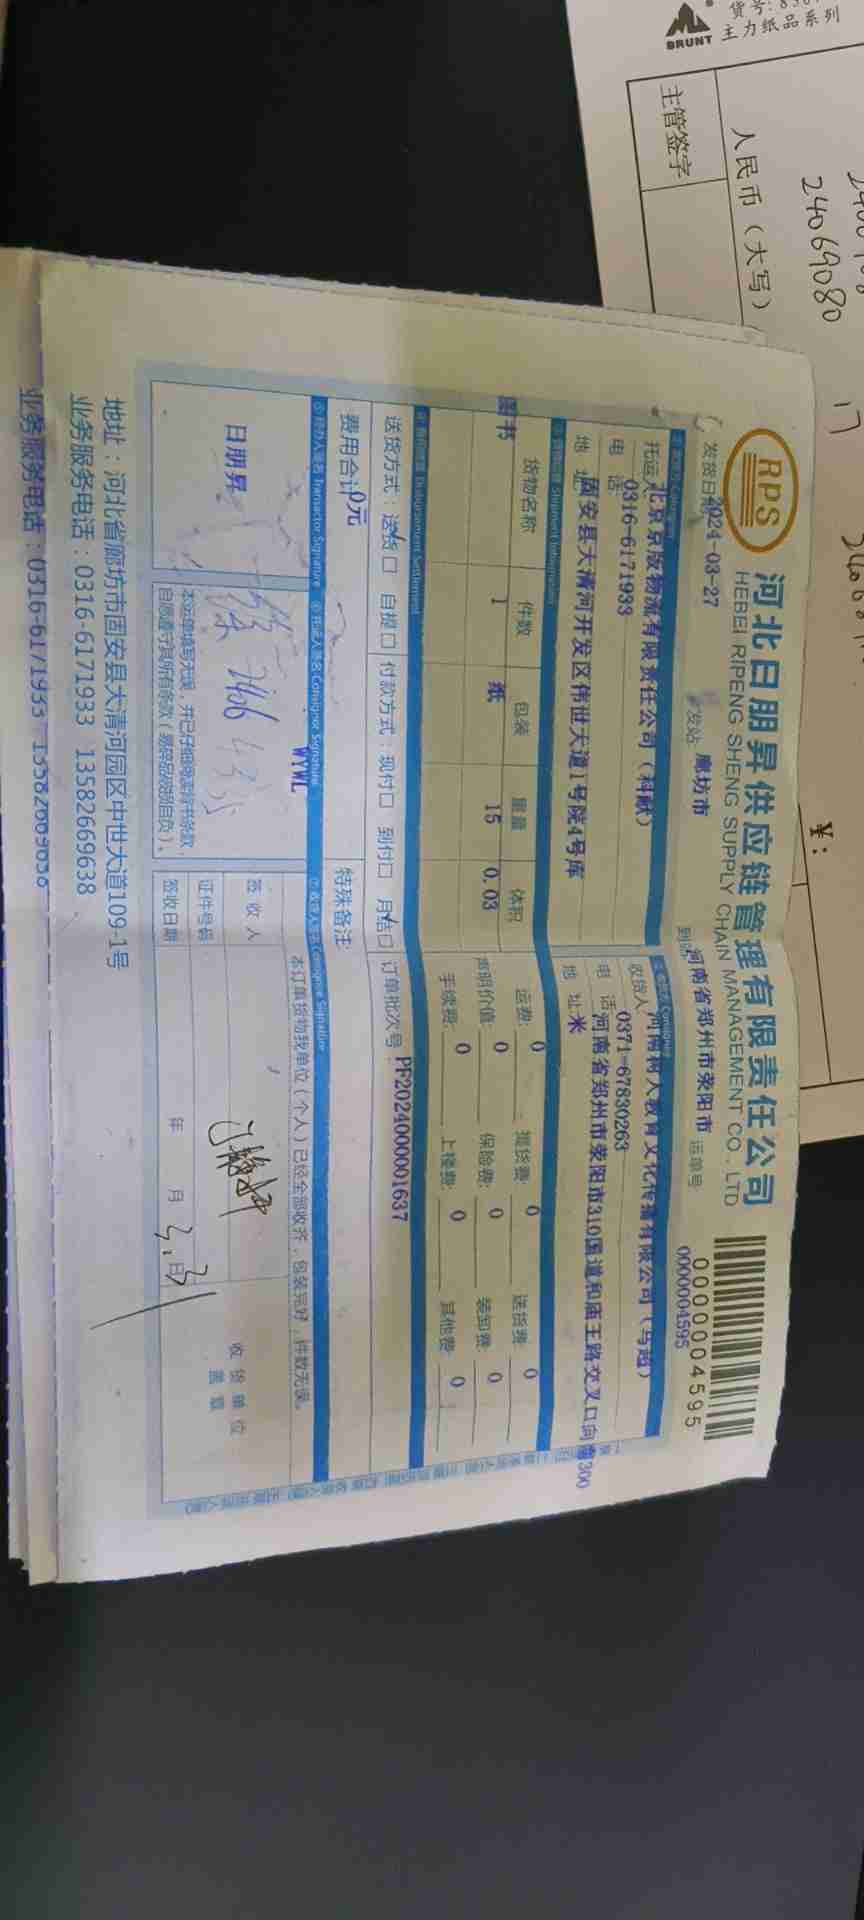 BRUNT
货号:
主力纸品系列
主管签字
人民币（大写）
24069080
¥:
RPS
河北日朋昇供应链管理有限责任公司
HEBEI RIPENG SHENG SUPPLY CHAIN MANAGEMENT CO . LTD
00000004595
0000004595
发货日期 2024-03-27
发站 廊坊市
到站 河南省郑州市荥阳市
运单号
托运人 北京京版物流有限责任公司（科献）
收货人 河南树人教育文化传播有限公司（马超）
电 话 0316-6171933
电 话 0371-67830263
地 址 固安县大清河开发区伟世大道1号院4号库
地 址 河南省郑州市荥阳市310国道和庙王路交叉口向南300
米
Shipment Information
货物名称 件数 包装 重量 体积
图书 1 纸 15 0.03
运费: 0 提货费: 0 送货费: 0
声明价值: 0 保险费: 0 装卸费: 0
手续费: 0 上楼费: 0 其他费: 0
Disbursement Settlement
送货方式：送货☑ 自提☐ 付款方式：现付☐ 到付☐ 月结☑
订单批次号 PF2024000001637
费用合计 0元
特殊备注:
⑤ 经办人签名 Transactor Signature
⑥ 托运人签名 Consignor Signature
⑦ 收货人签名 Consignee Signature
日朋昇
WYWL
本订单货物我单位（个人）已经全部收齐，包装完好，件数无误。
签 收 人
证件号码
签收日期
年 月 日
3.31
收 货 单 位
盖 章
本运单填写无误，并已仔细阅读背书条款，
自愿遵守其所有条款（易碎品破损自负）。
地址：河北省廊坊市固安县大清河园区中世大道109-1号
业务服务电话：0316-6171933 13582669638
业务服务电话：0316-6171933 13582669638